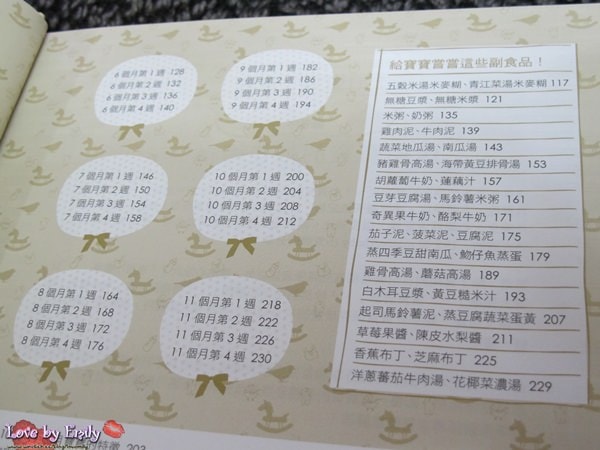 6 個月第 1 週 128
6 個月第 2 週 132
6 個月第 3 週 136
6 個月第 4 週 140
9 個月第 1 週 182
9 個月第 2 週 186
9 個月第 3 週 190
9 個月第 4 週 194
7 個月第 1 週 146
7 個月第 2 週 150
7 個月第 3 週 154
7 個月第 4 週 158
10 個月第 1 週 200
10 個月第 2 週 204
10 個月第 3 週 208
10 個月第 4 週 212
8 個月第 1 週 164
8 個月第 2 週 168
8 個月第 3 週 172
8 個月第 4 週 176
11 個月第 1 週 218
11 個月第 2 週 222
11 個月第 3 週 226
11 個月第 4 週 230
給寶寶嘗嘗這些副食品！
五穀米湯米麥糊、青江菜湯米麥糊 117
無糖豆漿、無糖米漿 121
米粥、奶粥 135
雞肉泥、牛肉泥 139
蔬菜地瓜湯、南瓜湯 143
豬雞骨高湯、海帶黃豆排骨湯 153
胡蘿蔔牛奶、蓮藕汁 157
豆芽豆腐湯、馬鈴薯米粥 161
奇異果牛奶、酪梨牛奶 171
茄子泥、菠菜泥、豆腐泥 175
蒸四季豆甜南瓜、魩仔魚蒸蛋 179
雞骨高湯、蘑菇高湯 189
白木耳豆漿、黃豆糙米汁 193
起司馬鈴薯泥、蒸豆腐蔬菜蛋黃 207
草莓果醬、陳皮水梨醬 211
香蕉布丁、芝麻布丁 225
洋蔥蕃茄牛肉湯、花椰菜濃湯 229
Love by Emily
的特徵 202